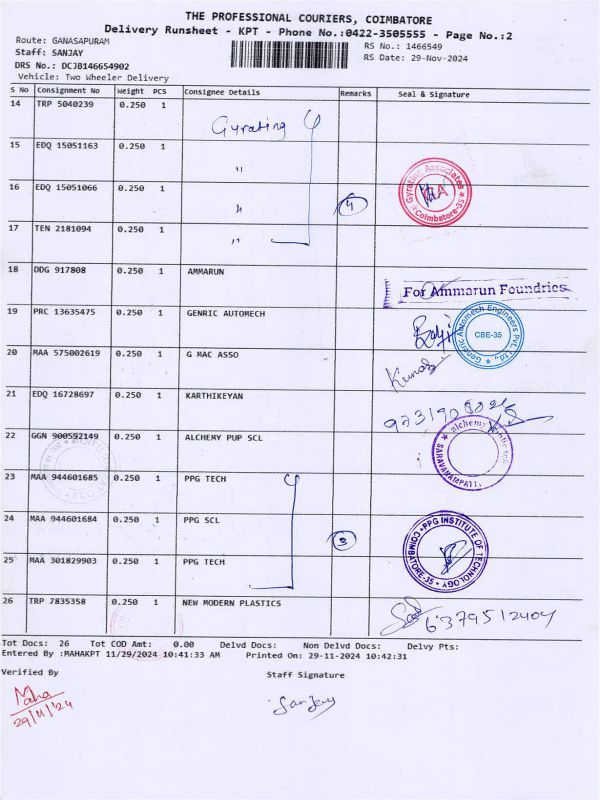 THE PROFESSIONAL COURIERS, COIMBATORE
Delivery Runsheet - KPT - Phone No.:0422-3505555 - Page No.:2
Route: GANASAPURAM
RS No.: 1466549
Staff: SANJAY
RS Date: 29-Nov-2024
DRS No.: DCJB146654902
Vehicle: Two Wheeler Delivery
S No Consignment No Weight PCS Consignee Details Remarks Seal & Signature
14 TRP 5040239 0.250 1 Gyrating
15 EDQ 15051163 0.250 1 "
16 EDQ 15051066 0.250 1 " 4 Gyrating Associates GA Coimbatore-35
17 TEN 2181094 0.250 1 "
18 DDG 917808 0.250 1 AMMARUN For Ammarun Foundries
19 PRC 13635475 0.250 1 GENRIC AUTOMECH Generic Automech Engineers Pvt. Ltd., CBE-35
20 MAA 575002619 0.250 1 G MAC ASSO
21 EDQ 16728697 0.250 1 KARTHIKEYAN
22 GGN 900592149 0.250 1 ALCHEMY PUP SCL alchemy SARAVANAMPATTI
23 MAA 944601685 0.250 1 PPG TECH
24 MAA 944601684 0.250 1 PPG SCL 3 PPG INSTITUTE OF TECHNOLOGY COIMBATORE-35
25 MAA 301829903 0.250 1 PPG TECH
26 TRP 7835358 0.250 1 NEW MODERN PLASTICS 6379512404
Tot Docs: 26 Tot COD Amt: 0.00 Delvd Docs: Non Delvd Docs: Delvy Pts:
Entered By :MAHAKPT 11/29/2024 10:41:33 AM Printed On: 29-11-2024 10:42:31
Verified By
Staff Signature
Maha
29/11/24
Sanjay